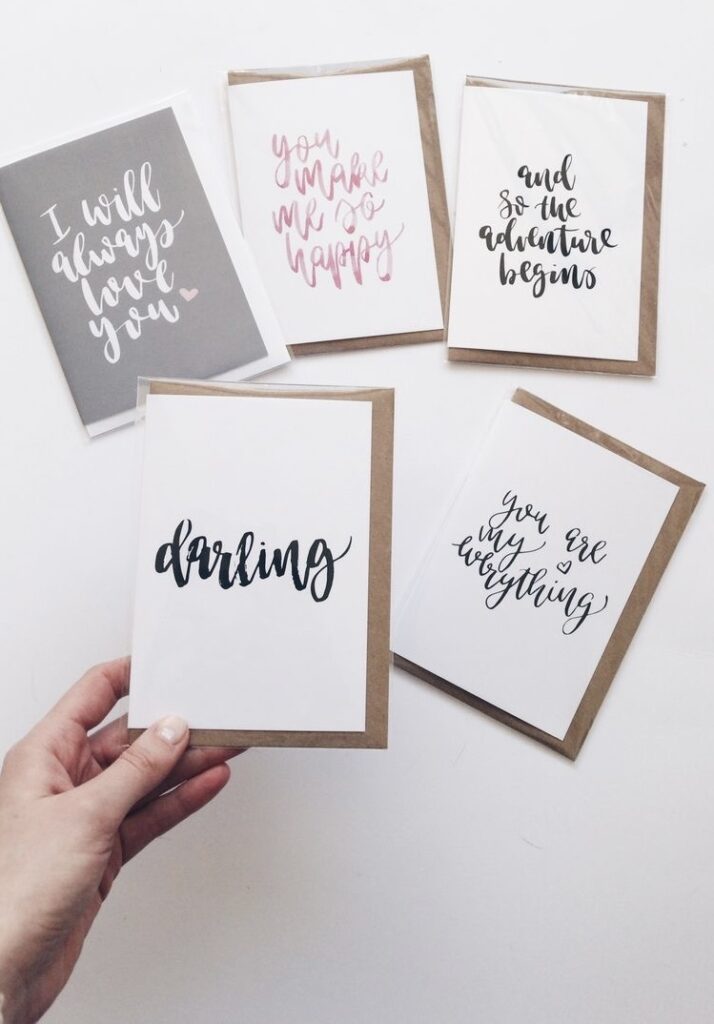 I will
always
love
you
you
make
me so
happy
and
so the
adventure
begins
darling
you are
my
everything